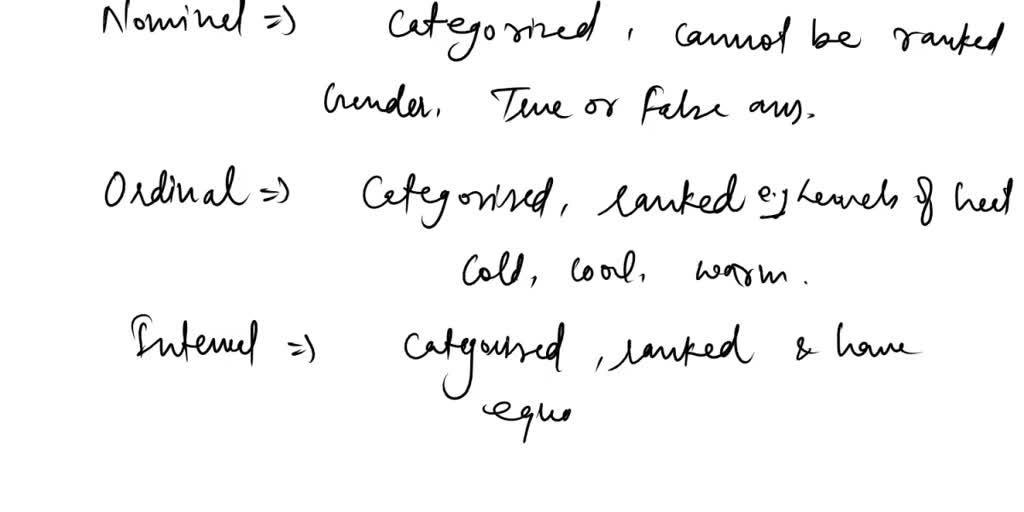 Nominal => Categorized, cannot be ranked
Gender. True or false ans.
Ordinal => Categorised, ranked e.g Levels of heat
Cold, cool, warm.
Interval => Categorised, ranked & have
equa